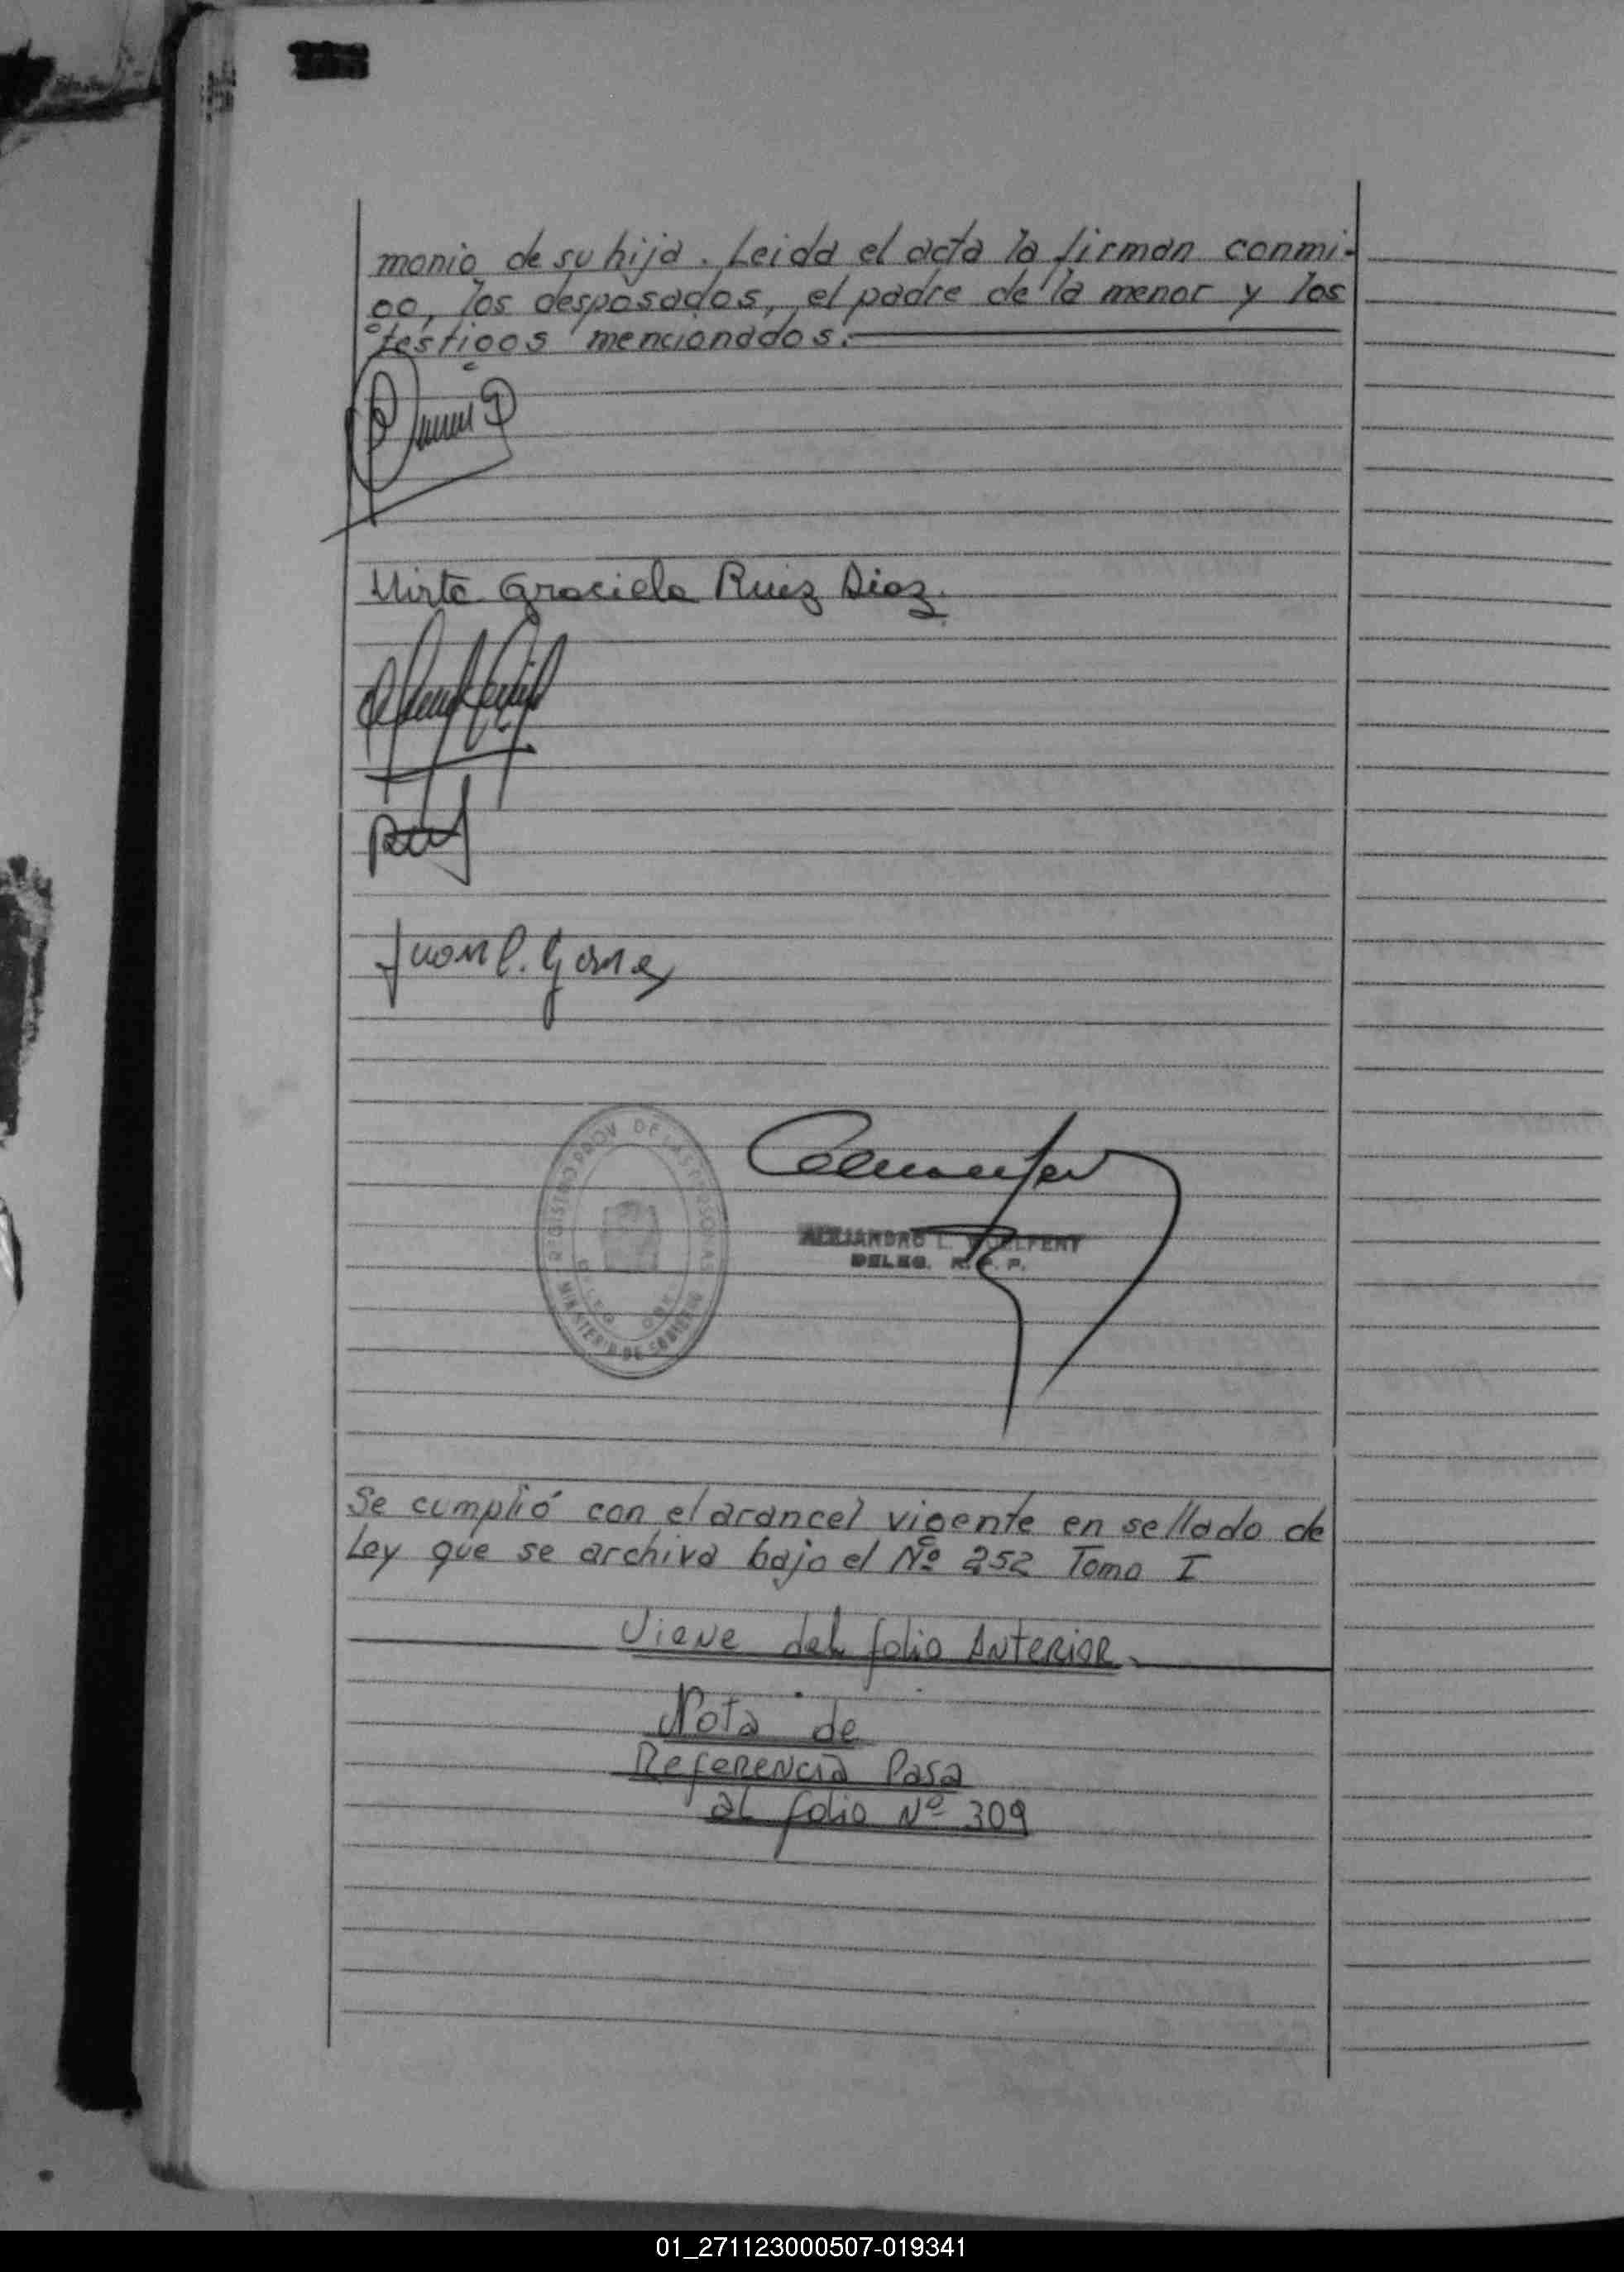 monio de su hija. Leida el acta la firman conmi-
go, los desposados, el padre de la menor y los
testigos mencionados.
Mirta Graciela Ruiz Diaz.
Juan C. Gomez
REGISTRO PROV. DE LAS PERSONAS
MINISTERIO DE GOBIERNO
ALEJANDRO L.
DELEG. R. P. P.
Se cumplió con el arancel vigente en sellado de
Ley que se archiva bajo el Nº 252 Tomo I
Viene del folio Anterior.
Nota de
Referencia Pasa
al folio Nº 309
01_271123000507-019341